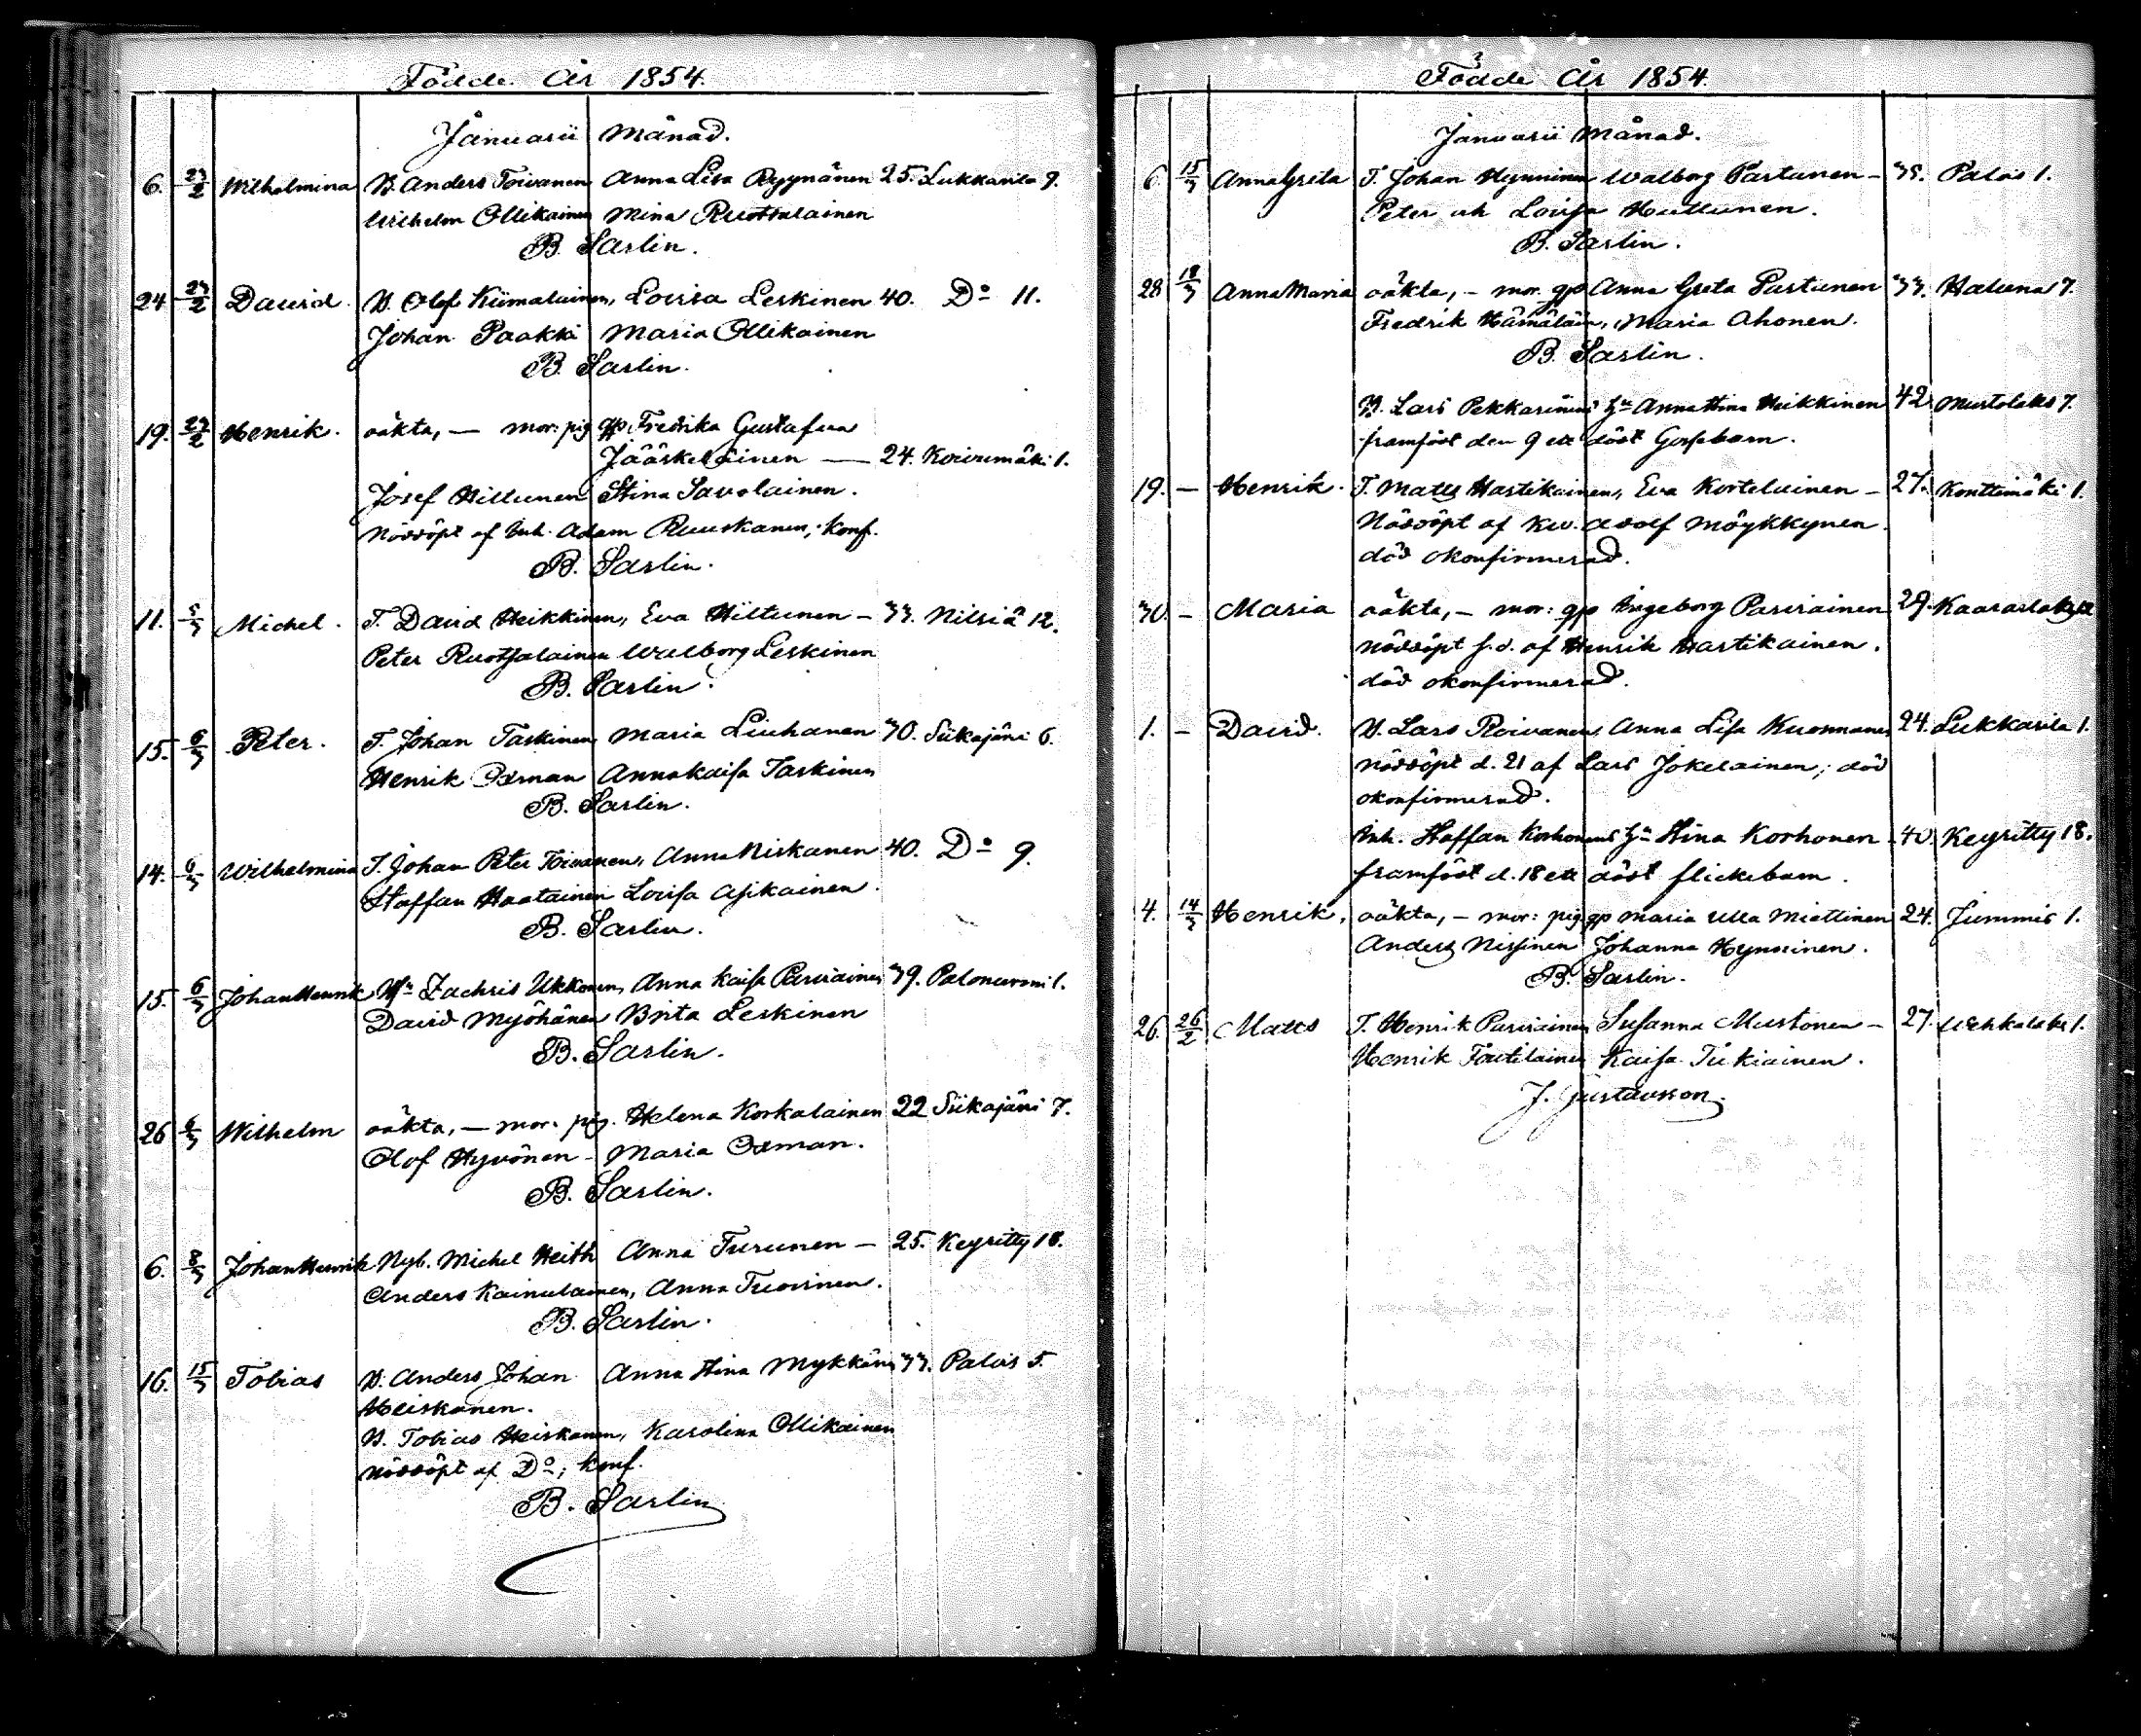 Födde År 1854.
Januarii Månad.
6. 27/2 Wilhelmina B. Anders Toivanen Anna Lisa Ryynänen 25. Lukkarila 9.
Wilhelm Ollikainen Mina Ruotsalainen
B. Sarlin.
24 27/2 David. B. Olof Kiimalainen, Lovisa Leskinen 40. Do 11.
Johan Paakki Maria Ollikainen
B. Sarlin.
19. 27/2 Henrik. oäkta, — mor: pig. Fredrika Gustafva
Jääskeläinen — 24. Koivumäki 1.
Josef Hiltunen Stina Savolainen.
Nöddöpt af Inh. Adam Ruuskanen; konf.
B. Sarlin.
11. 5/3 Michel. T. David Heikkinen, Eva Hiltunen – 33. Nilsiä 12.
Peter Ruotsalainen Walborg Leskinen
B. Sarlin.
15. 6/3 Peter. T. Johan Taskinen Maria Liuhanen 30. Siikajärvi 6.
Henrik Oxman Anna Kaisa Taskinen
B. Sarlin.
14. 6/3 Wilhelmina T. Johan Peter Toivanen, Anna Niskanen 40. Do 9.
Staffan Haatainen Lovisa Asikainen.
B. Sarlin.
15. 6/3 Johan Henrik Zachris Ukkonen, Anna Kaisa Parviainen 39. Palonurmi 1.
David Myöhänen Brita Leskinen
B. Sarlin.
26 6/3 Wilhelm oäkta, — mor: pig. Helena Korkalainen 22 Siikajärvi 7.
Olof Hyvönen – Maria Oxman.
B. Sarlin.
6. 8/3 Johan Henrik Nyb. Michel Heith Anna Turunen – 25. Keyritty 18.
Anders Kainulainen, Anna Tuovinen.
B. Sarlin.
16. 15/3 Tobias B. Anders Johan Anna Stina Mykkänen 33. Palois 5.
Heiskanen.
B. Tobias Heiskanen, Karolina Ollikainen
Nöddöpt af Do; konf.
B. Sarlin
Födde År 1854.
Januarii Månad.
6. 15/3 Anna Greta T. Johan Hynninen Walborg Partanen – 38. Palois 1.
Peter och Lovisa Huttunen.
B. Sarlin.
28 18/3 Anna Maria oäkta, – mor. Anna Greta Partanen 33. Haluna 7.
Fredrik Hämäläin, Maria Ahonen.
B. Sarlin.
B. Lars Pekkarinens Hu Anna Stina Heikkinen 42 Murtolaks 7.
framfödt den 9 ett dödt Gossebarn.
19. – Henrik. T. Matts Hartikainen, Eva Kortelainen – 27. Konttimäki 1.
Nöddöpt af Adolf Möykkynen.
död okonfirmerad.
30. – Maria oäkta, – mor: Ingeborg Parviainen 29.
nöddöpt s.d. af Henrik Hartikainen.
död okonfirmerad.
1. – David. B. Lars Roivanen, Anna Lisa Kuosmanen 24. Lukkarila 1.
nöddöpt d. 21 af Lars Jokelainen; död
okonfirmerad.
Inh. Staffan Korhonens Hu Stina Korhonen – 40. Keyritty 18.
framfödt d. 18 ett dödt flickebarn.
4. 14/3 Henrik, oäkta, – mor: pig Maria Ulla Miettinen 24. Jummis 1.
Anders Nissinen Johanna Hynninen.
B. Sarlin.
26. 26/2 Matts T. Henrik Parviainen Susanna Mustonen – 27. Wehkalaks 1.
Henrik Kaisa Tiikiainen.
J. Gustavsson.